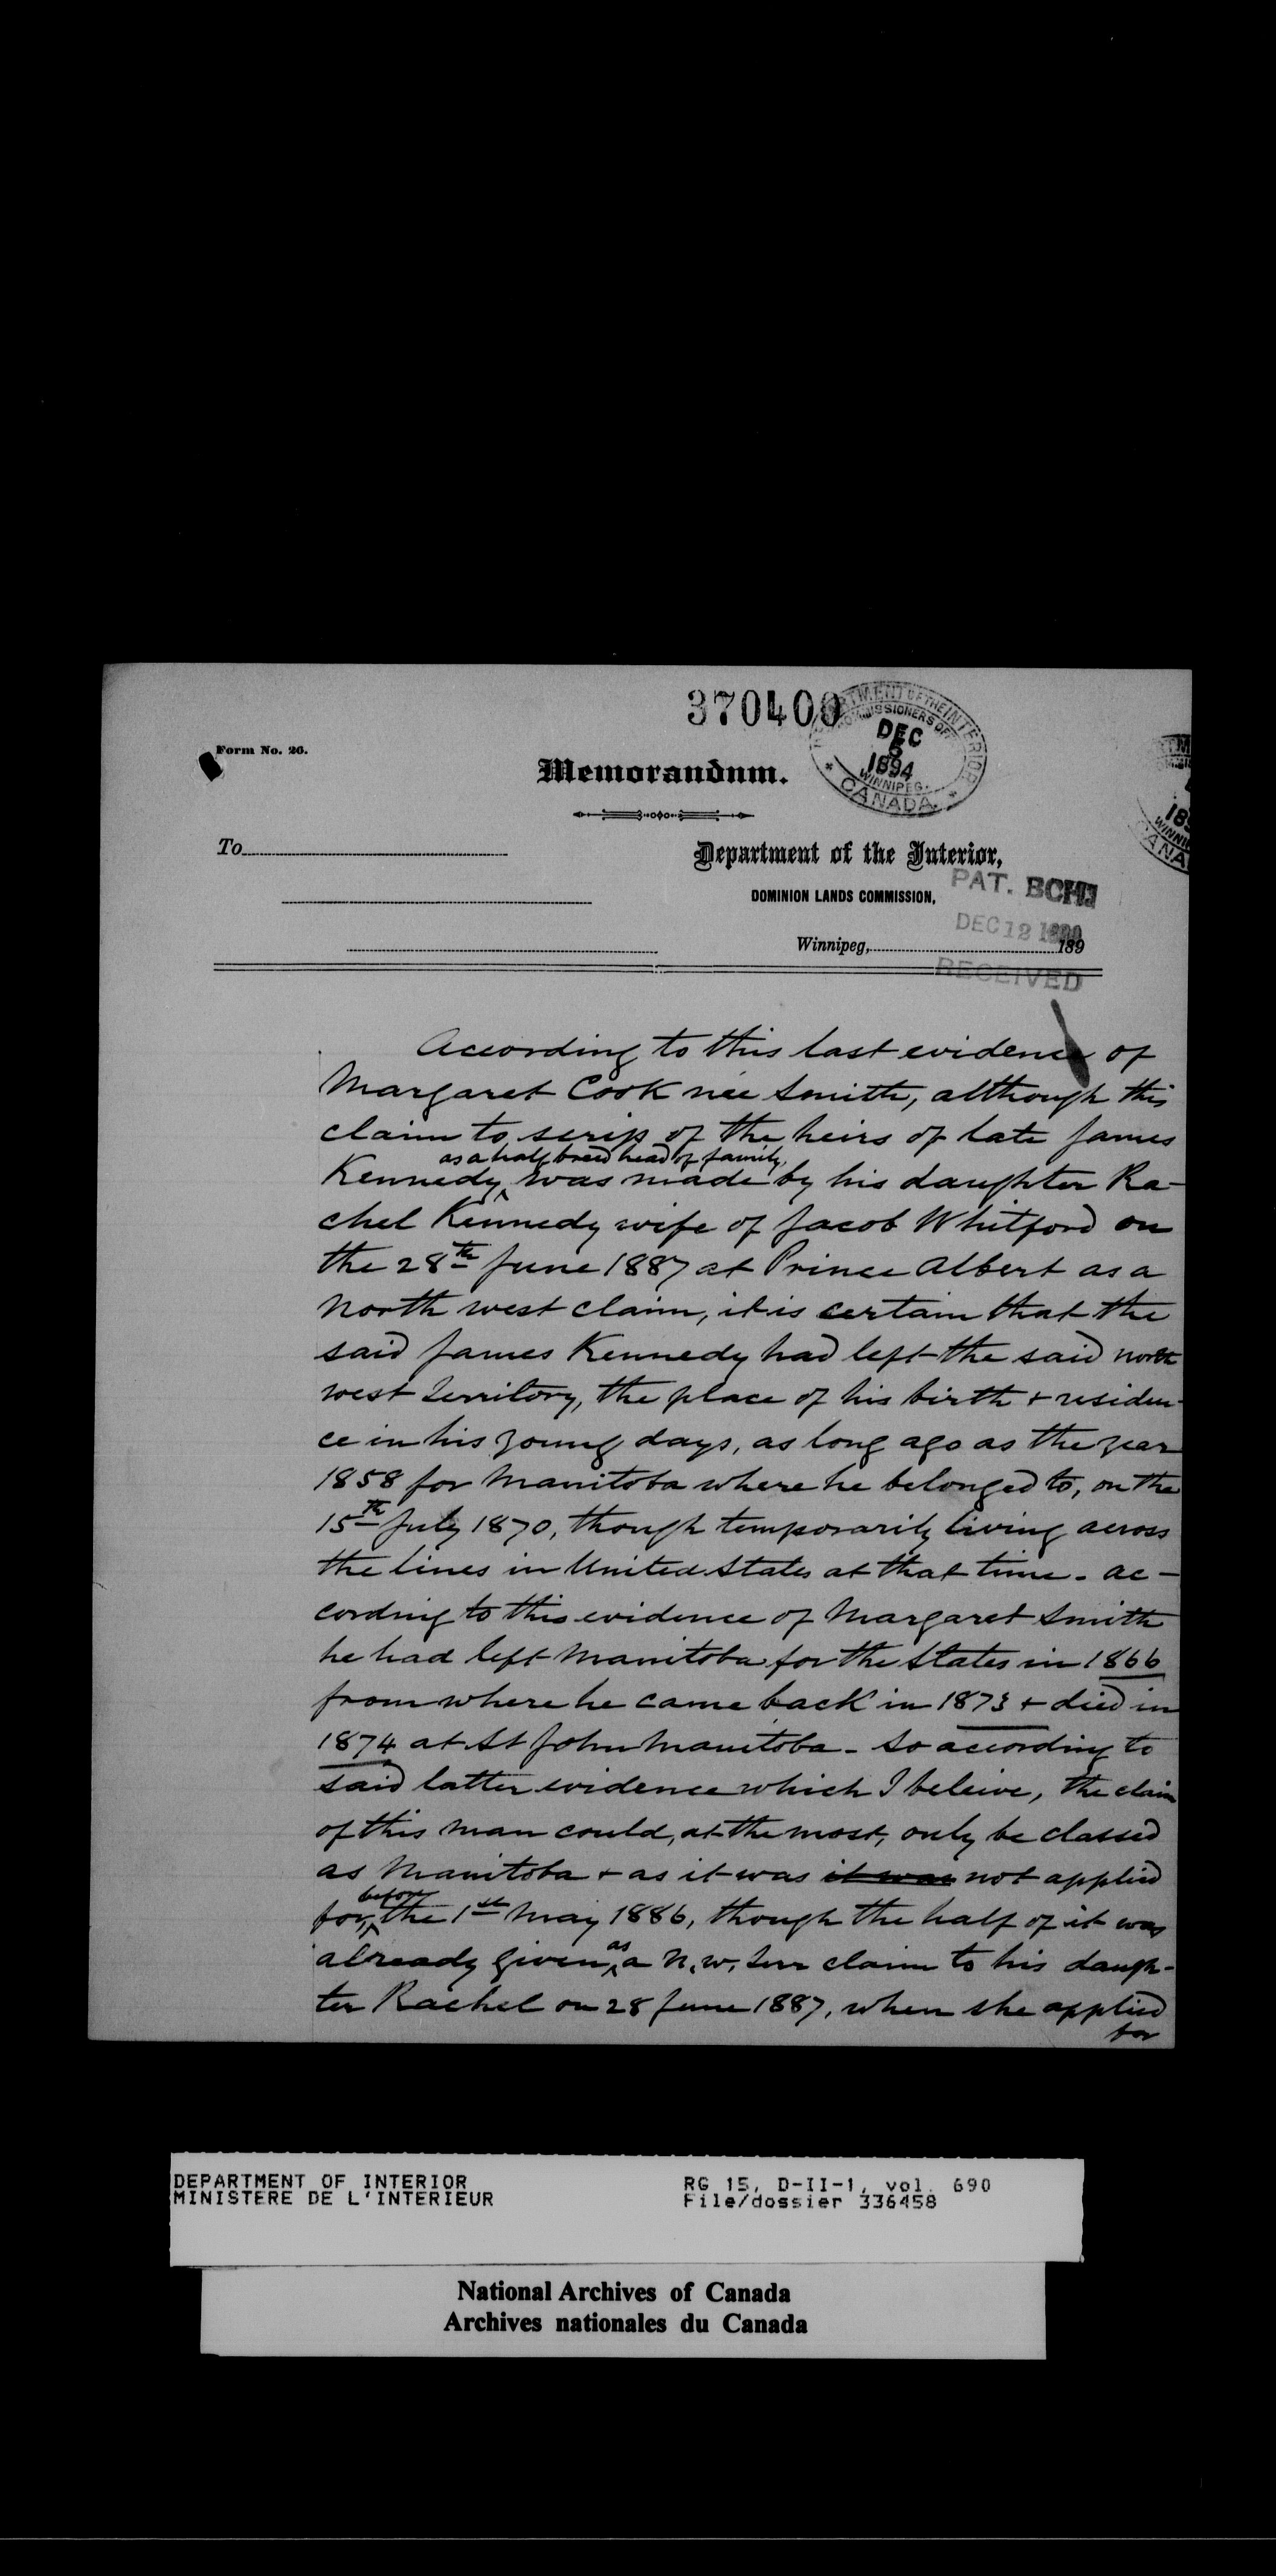 370400
DEPARTMENT OF THE INTERIOR
COMMISSIONERS OFF
DEC
5
1894
WINNIPEG.
CANADA
Form No. 26.
Memorandum.
To
Department of the Interior,
DOMINION LANDS COMMISSION,
PAT. BCH
DEC 12
Winnipeg, 189
RECEIVED
According to this last evidence of
Margaret Cook née Smith, although this
claim to scrip of the heirs of late James
as a half breed head of family
Kennedy, was made by his daughter Ra-
chel Kennedy wife of Jacob Whitford on
the 28th June 1887 at Prince Albert as a
North west claim, it is certain that the
said James Kennedy had left the said North
west Territory, the place of his birth + residen-
ce in his young days, as long ago as the year
1858 for Manitoba where he belonged to, on the
15th July 1870, though temporarily living across
the lines in United States at that time - ac-
cording to this evidence of Margaret Smith
he had left Manitoba for the States in 1866
from where he came back in 1873 + died in
1874 at St John Manitoba - So according to
said latter evidence which I beleive, the claim
of this man could, at the most, only be classed
as Manitoba + as it was it was not applied
before
for, the 1st May 1886, though the half of it was
as
already given a N.W. Terr claim to his daugh-
ter Rachel on 28 June 1887, when she applied
for
DEPARTMENT OF INTERIOR
MINISTERE DE L'INTERIEUR
RG 15, D-II-1, vol. 690
File/dossier 336458
National Archives of Canada
Archives nationales du Canada